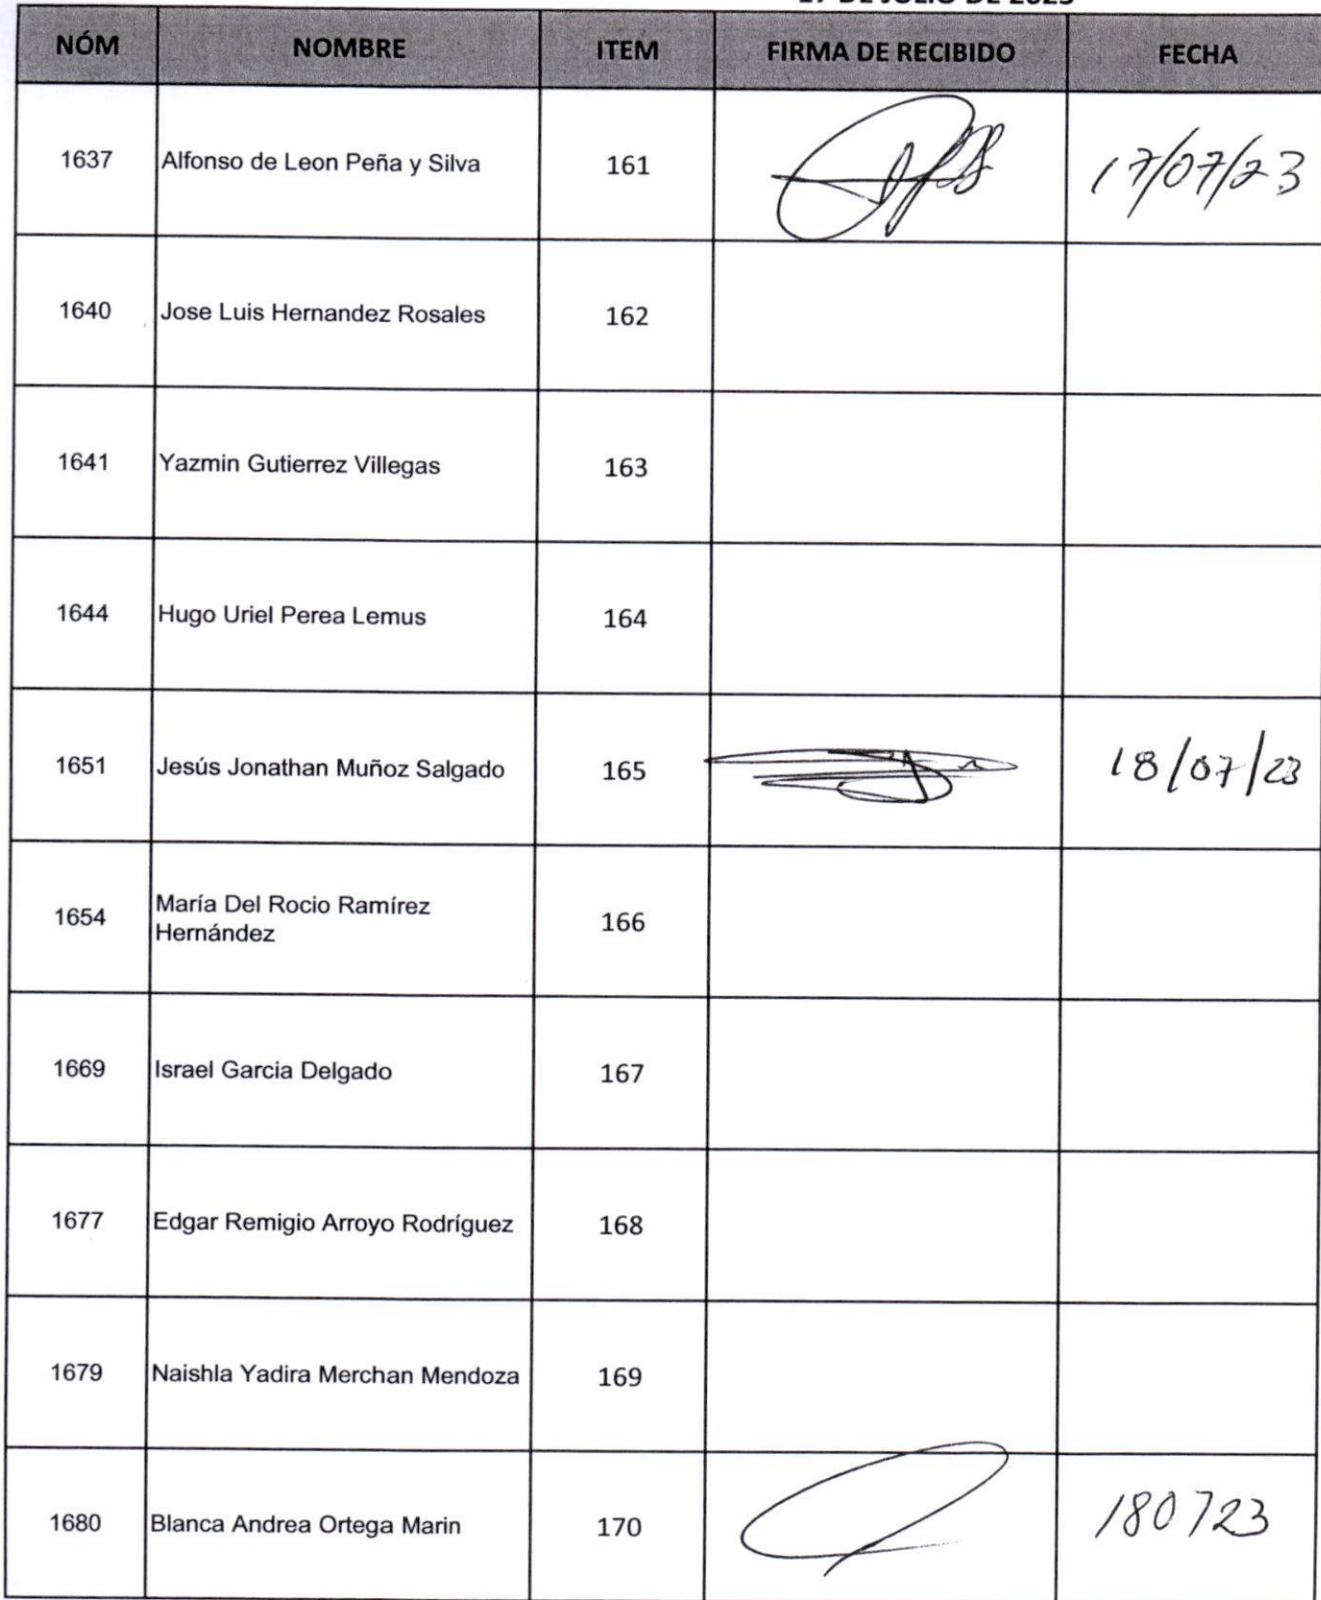 17 DE JULIO DE 2023
NÓM NOMBRE ITEM FIRMA DE RECIBIDO FECHA
1637 Alfonso de Leon Peña y Silva 161 17/07/23
1640 Jose Luis Hernandez Rosales 162
1641 Yazmin Gutierrez Villegas 163
1644 Hugo Uriel Perea Lemus 164
1651 Jesús Jonathan Muñoz Salgado 165 18/07/23
1654 María Del Rocio Ramírez
Hernández 166
1669 Israel Garcia Delgado 167
1677 Edgar Remigio Arroyo Rodríguez 168
1679 Naishla Yadira Merchan Mendoza 169
1680 Blanca Andrea Ortega Marin 170 180723